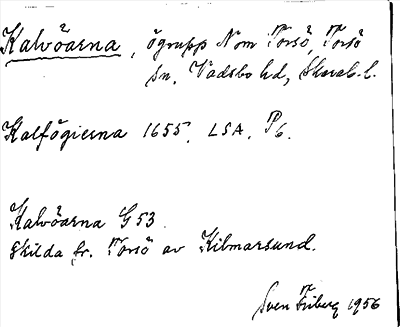 Kalvöarna, ögrupp N om Torsö, Torsö
sn, Vadsbo hd, Skarab. l.
Kalfögierna 1655. LSA. P6.
Kalvöarna G 53.
skilda fr. Torsö av Kilmarsund.
Sven Friberg 1956